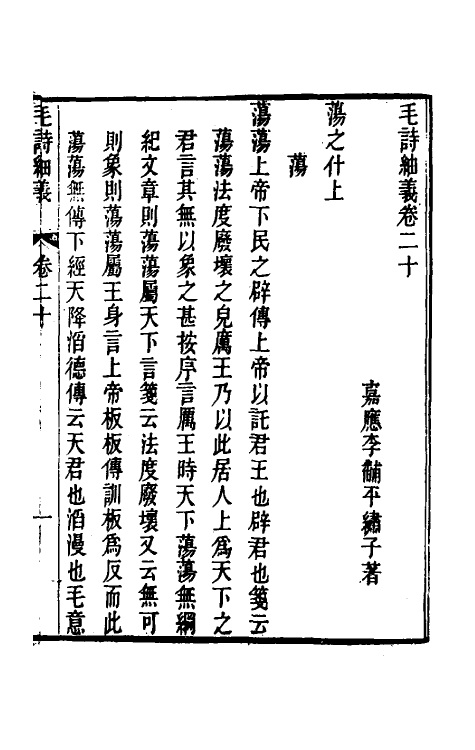 毛詩紬義卷二十
嘉應李黼平繡子著
蕩之什上
蕩
蕩蕩上帝下民之辟傳上帝以託君王也辟君也箋云
蕩蕩法度廢壞之皃厲王乃以此居人上爲天下之
君言其無以象之甚按序言厲王時天下蕩蕩無綱
紀文章則蕩蕩屬天下言箋云法度廢壞又云無可
則象則蕩蕩屬王身言上帝板板傳訓板爲反而此
蕩蕩無傳下經天降滔德傳云天君也滔漫也毛意
毛詩紬義 卷二十 一